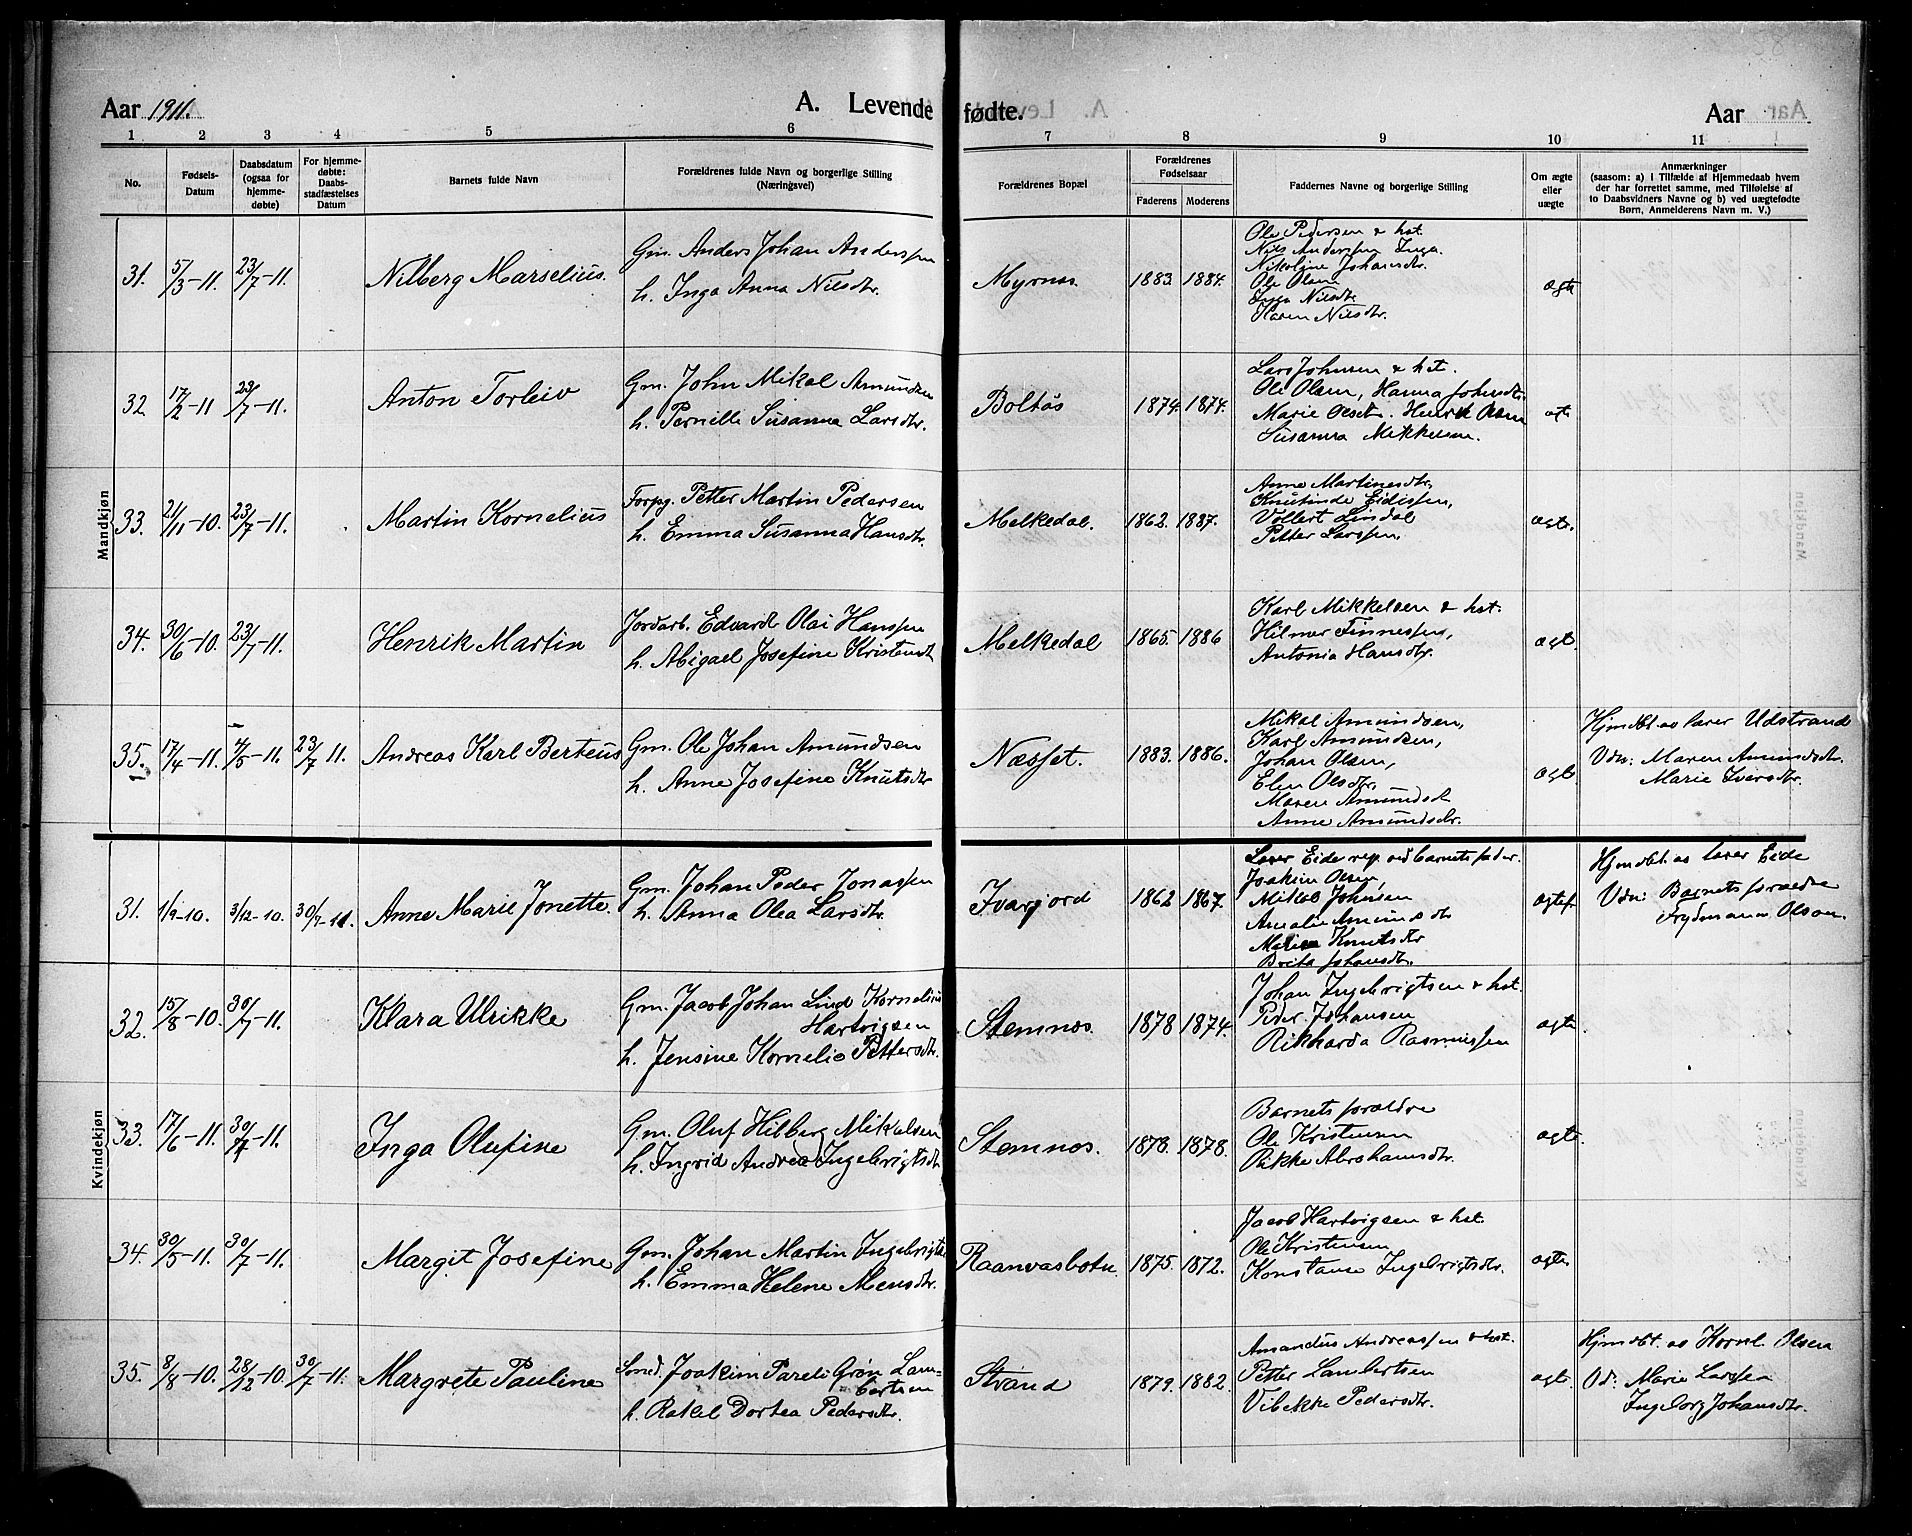 Aar 1911.
A. Levende fødte.
Aar
1 2 3 4 5 6 7 8 9 10 11
No.
Fødsels-
Datum
Daabsdatum
(ogsaa for
hjemme-
døbte)
For hjemme-
døbte:
Daabs-
stadfæstelses
Datum
Barnets fulde Navn
Forældrenes fulde Navn og borgerlige Stilling
(Næringsvei)
Forældrenes Bopæl
Forældrenes
Fødselsaar
Faderens Moderens
Faddernes Navne og borgerlige Stilling
Om ægte
eller
uægte
Anmærkninger
(saasom: a) i Tilfælde af Hjemmedaab hvem
der har forrettet samme, med Tilføielse af
to Daabsvidners Navne og b) ved uægtefødte
Børn, Anmelderens Navn m. V.)
Mandkjøn
31. 5/3-11. 23/7-11. Nilberg Marselius.
Gm. Anders Johan Anderssen
h. Inga Anna Nilsdtr.
Myrnes. 1883. 1884.
Ole Pedersen & hst.
Nils Anderssen Inga
Nikoline Johansdtr.
Ole Olsen
Inga Nilsdtr
Karen Nilsdtr.
ægte
32 17/2-11 23/7-11. Anton Torleiv
Gm. John Mikal Amundsen
h. Pernille Susanna Larsdtr.
Boltås 1874. 1874.
Lars Johnsen & hst.
Ole Olsen, Hanna Johansdtr.
Marie Olsdtr. Henrik Olsen
Susanna Mikkelsen.
ægte
33. 21/11-10. 23/7-11. Martin Kornelius
Forpg. Petter Martin Pedersen
h. Emma Susanna Hansdtr.
Melkedal. 1862. 1887.
Anne Martinesdtr,
Knutinde Eidissen,
Vollert Lindal
Petter Larssen,
ægte.
34. 30/6-10. 23/7-11. Henrik Martin
Jordarb. Edvard Olai Hanssen
h. Abigael Josefine Kristensdt
Melkedal 1865. 1886
Karl Mikkelsen & hst.
Hilmar Finnessen,
Antonia Hansdtr.
ægt.
35. 17/4-11. 4/5-11. 23/7 11. Andreas Karl Berteus
Gm. Ole Johan Amundsen
h. Anne Josefine Knutsdtr
Næsset. 1883. 1886.
Mikal Amundsen,
Karl Amundsen,
Johan Olsen,
Elen Olsdtr,
Maren Amundsd
Anne Amundsdtr.
ægte
Hjmdbt. av lærer Udstrand
Vdn: Maren Amundsdtr.
Marie Iversdtr.
Kvindekjøn
31. 1/9-10. 3/12-10. 30/7-11. Anne Marie Jonette.
Gm. Johan Peder Jonassen
h. Anna Olea Larsdtr.
Ivarjord 1862 1867.
Lærer Eide rep. ved barnets fader.
Joakim Olsen
Mikal Johnsen
Amalie Amundsdtr
Knutsdtr
Brita Johansdtr.
ægtef.
Hjmdbt. av lærer Eide
Vdn: Barnets forældre
Frydmann Olsen.
32. 15/8-10. 30/7-11. Klara Ulrikke
Gm. Jacob Johan Lind Kornelius
Hartvigsen
h. Jensine Kornelia Pettersdtr.
Stemnes. 1878 1874.
Johan Ingebrigtsen & hst.
Peder Johansen
Rikharda Rasmussen
ægte
33. 17/6-11. 30/7-11. Inga Olufine
Gm. Oluf Hilberg Mikalsen
h. Ingrid Andrea Ingebrigtsdtr
Stemnes. 1878. 1878.
Barnets forældre
Ole Kristensen
Rikke Abrahamsdtr.
ægte
34. 30/5-11. 30/7-11. Margit Josefine
Gm. Johan Martin Ingebrigts
h. Emma Helene Mensdtr.
Raanvasbotn. 1875. 1872.
Jacob Hartvigsen & hst.
Ole Kristensen
Konstanse Ingebrigtsdtr.
ægte
35. 8/8-10. 28/12-10. 30/7-11. Margrete Pauline
Smed. Joakim Pareli Grøn Lam-
bertsen
h. Rakel Dortea Pedersdtr.
Strand 1879. 1882.
Amandus Andreassen & hst.
Petter Lambertsen
Vibekke Pedersdtr.
ægt.
Hjmdbt. av Kornel. Olsen
Vd: Marie Larssen
Ingeborg Johansdtr.